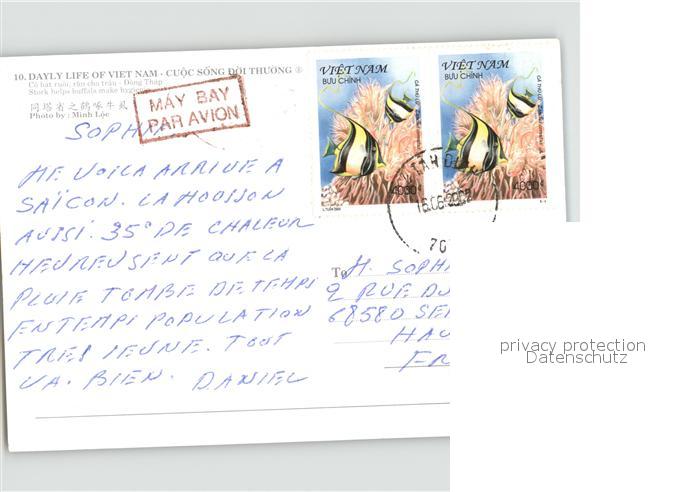 10. DAYLY LIFE OF VIET NAM - CUỘC SỐNG ĐỜI THƯỜNG
Cò bắt ruồi, rận cho trâu - Đồng Tháp
Stork helps buffalo make hygiene
同塔省之鹤啄牛虱
Photo by : Minh Lộc
MÁY BAY
PAR AVION
VIỆT NAM
BƯU CHÍNH
4000đ
VIỆT NAM
BƯU CHÍNH
4000đ
70
SOPHIA
ME VOILA ARRIVE A
SAÏCON. LA MOUSSON
AUSSI. 35° DE CHALEUR
HEUREUSENT QUE LA
PLUIE TOMBE DE TEMPI
EN TEMPI POPULATION
TRES JEUNE. TOUT
VA. BIEN. DANIEL
To M. SOPHI
2 RUE DU
68580 SE
HAU
FR
privacy protection
Datenschutz